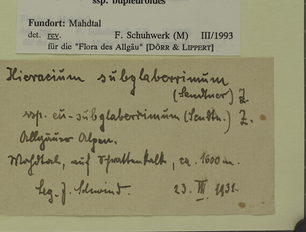 ssp. bupleuroides
Fundort: Mahdtal
det. rev. F. Schuhwerk (M) III/1993
für die "Flora des Allgäu" [DÖRR & LIPPERT]
Hieracium subglaberrimum
(Sendtner) Z.
ssp. eu-subglaberrimum (Sendtn.) Z.
Allgäuer Alpen.
Mahdtal, auf Schrattenkalk, ca. 1600 m.
Leg. J. Schwind. 23. VII. 1931.